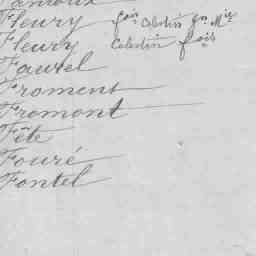 Fleury fois Célestin fs Mie
Fleury Célestin fois
Faurel
Froment
Fromont
Fête
Fouré
Fontel